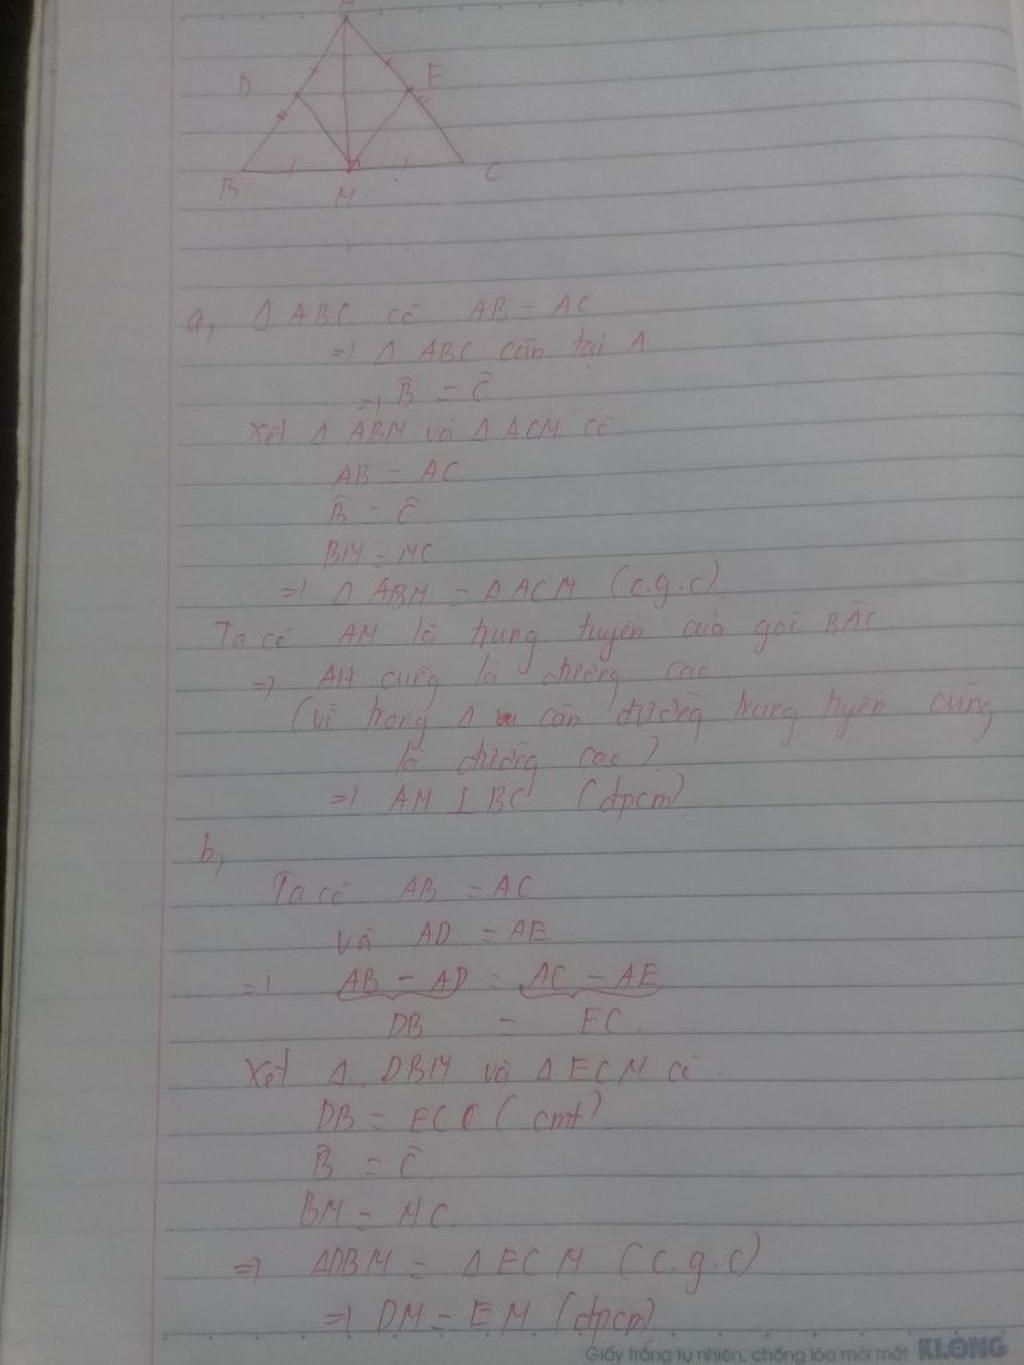 A
D
E
B
M
C
a, Δ ABC có AB = AC
=> Δ ABC cân tại A
=> B̂ = Ĉ
Xét Δ ABM và Δ ACM có:
AB = AC
B̂ = Ĉ
BM = MC
=> Δ ABM = Δ ACM (c.g.c)
Ta có AM là trung tuyến của góc BÂC
=> AM cũng là đường cao
(vì trong Δ cân đường trung tuyến cũng
là đường cao)
=> AM ⊥ BC (đpcm)
b,
Ta có AB = AC
và AD = AE
=> AB - AD = AC - AE
DB = EC
Xét Δ DBM và Δ ECM có
DB = EC (cmt)
B̂ = Ĉ
BM = MC
=> ΔDBM = Δ ECM (c.g.c)
=> DM = EM (đpcm)
Giấy trắng tự nhiên, chống lóa mỏi mắt KLONG